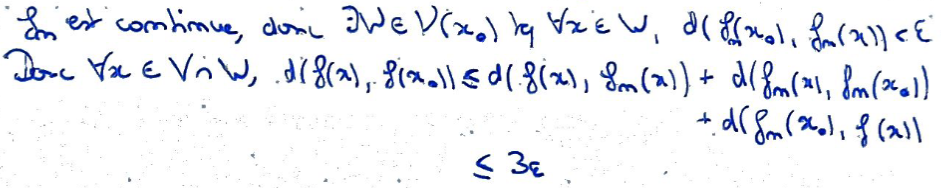 fn est continue, donc ∃W ∈ V(x₀) tq ∀x ∈ W, d(fn(x₀), fn(x)) < ε
Donc ∀x ∈ V∩W, d(f(x), f(x₀)) ≤ d(f(x), fn(x)) + d(fn(x), fn(x₀))
+ d(fn(x₀), f(x))
≤ 3ε